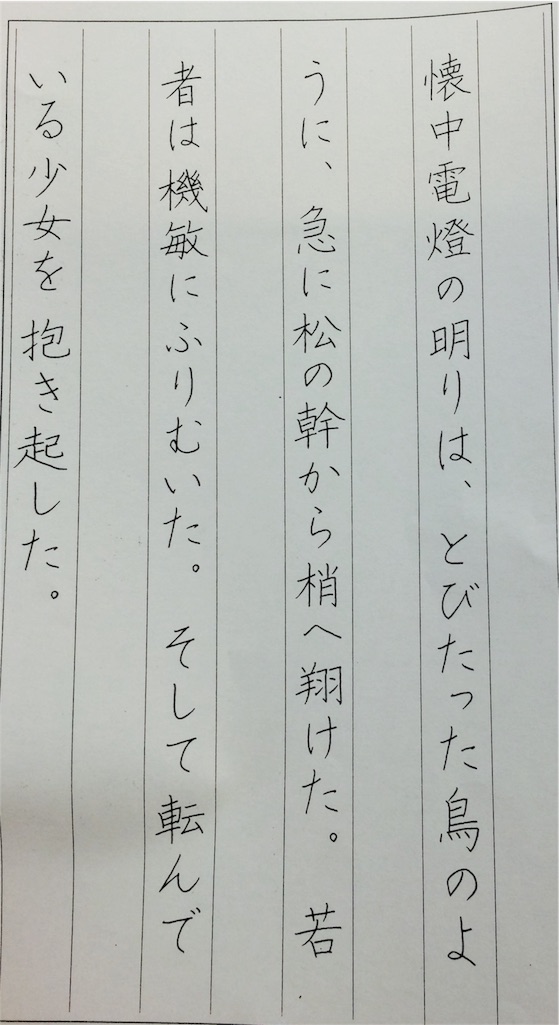 懐中電燈の明りは、とびたった鳥のよ
うに、急に松の幹から梢へ翔けた。若
者は機敏にふりむいた。そして転んで
いる少女を抱き起した。